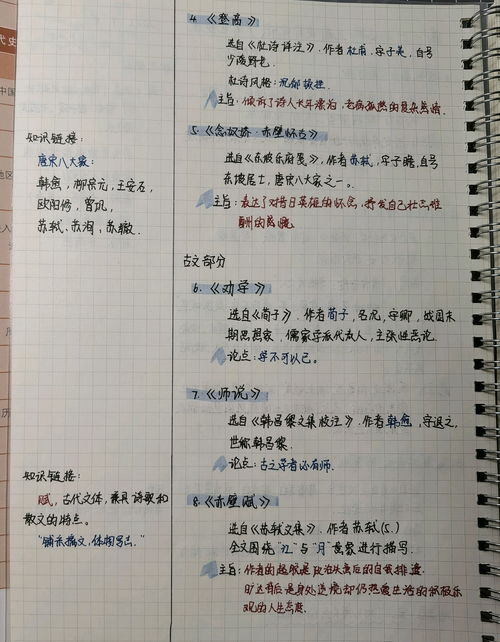 4.《登高》
选自《杜诗详注》.作者杜甫,字子美,自号
少陵野老.
杜诗风格:沉郁顿挫.
主旨:倾诉了诗人长年漂泊、老病孤愁的复杂感情.
5.《念奴娇·赤壁怀古》
选自《东坡乐府笺》,作者苏轼,字子瞻,自号
东坡居士,唐宋八大家之一.
主旨:表达了对昔日英雄的怀念,抒发自己壮志难
酬的感慨
知识链接:
唐宋八大家:
韩愈,柳宗元,王安石,
欧阳修,曾巩,
苏轼、苏洵、苏辙.
古文部分
6.《劝学》
选自《荀子》.作者荀子,名况,字卿,战国末
期思想家,儒家学派代表人,主张性恶论.
论点:学不可以已。
7.《师说》
选自《韩昌黎文集校注》.作者韩愈,字退之,
世称韩昌黎.
论点:古之学者必有师.
知识链接:
赋,古代文体,兼具诗歌和
散文的特点。
"铺采摛文,体物写志."
8.《赤壁赋》
选自《苏轼文集》.作者苏轼(5.)
全文围绕"江"与"月"意象进行描写.
主旨:作者的超脱是政治失意后的自我排遣.
旷达背后是身处逆境却仍热爱生活的积极乐
观的人生态度.